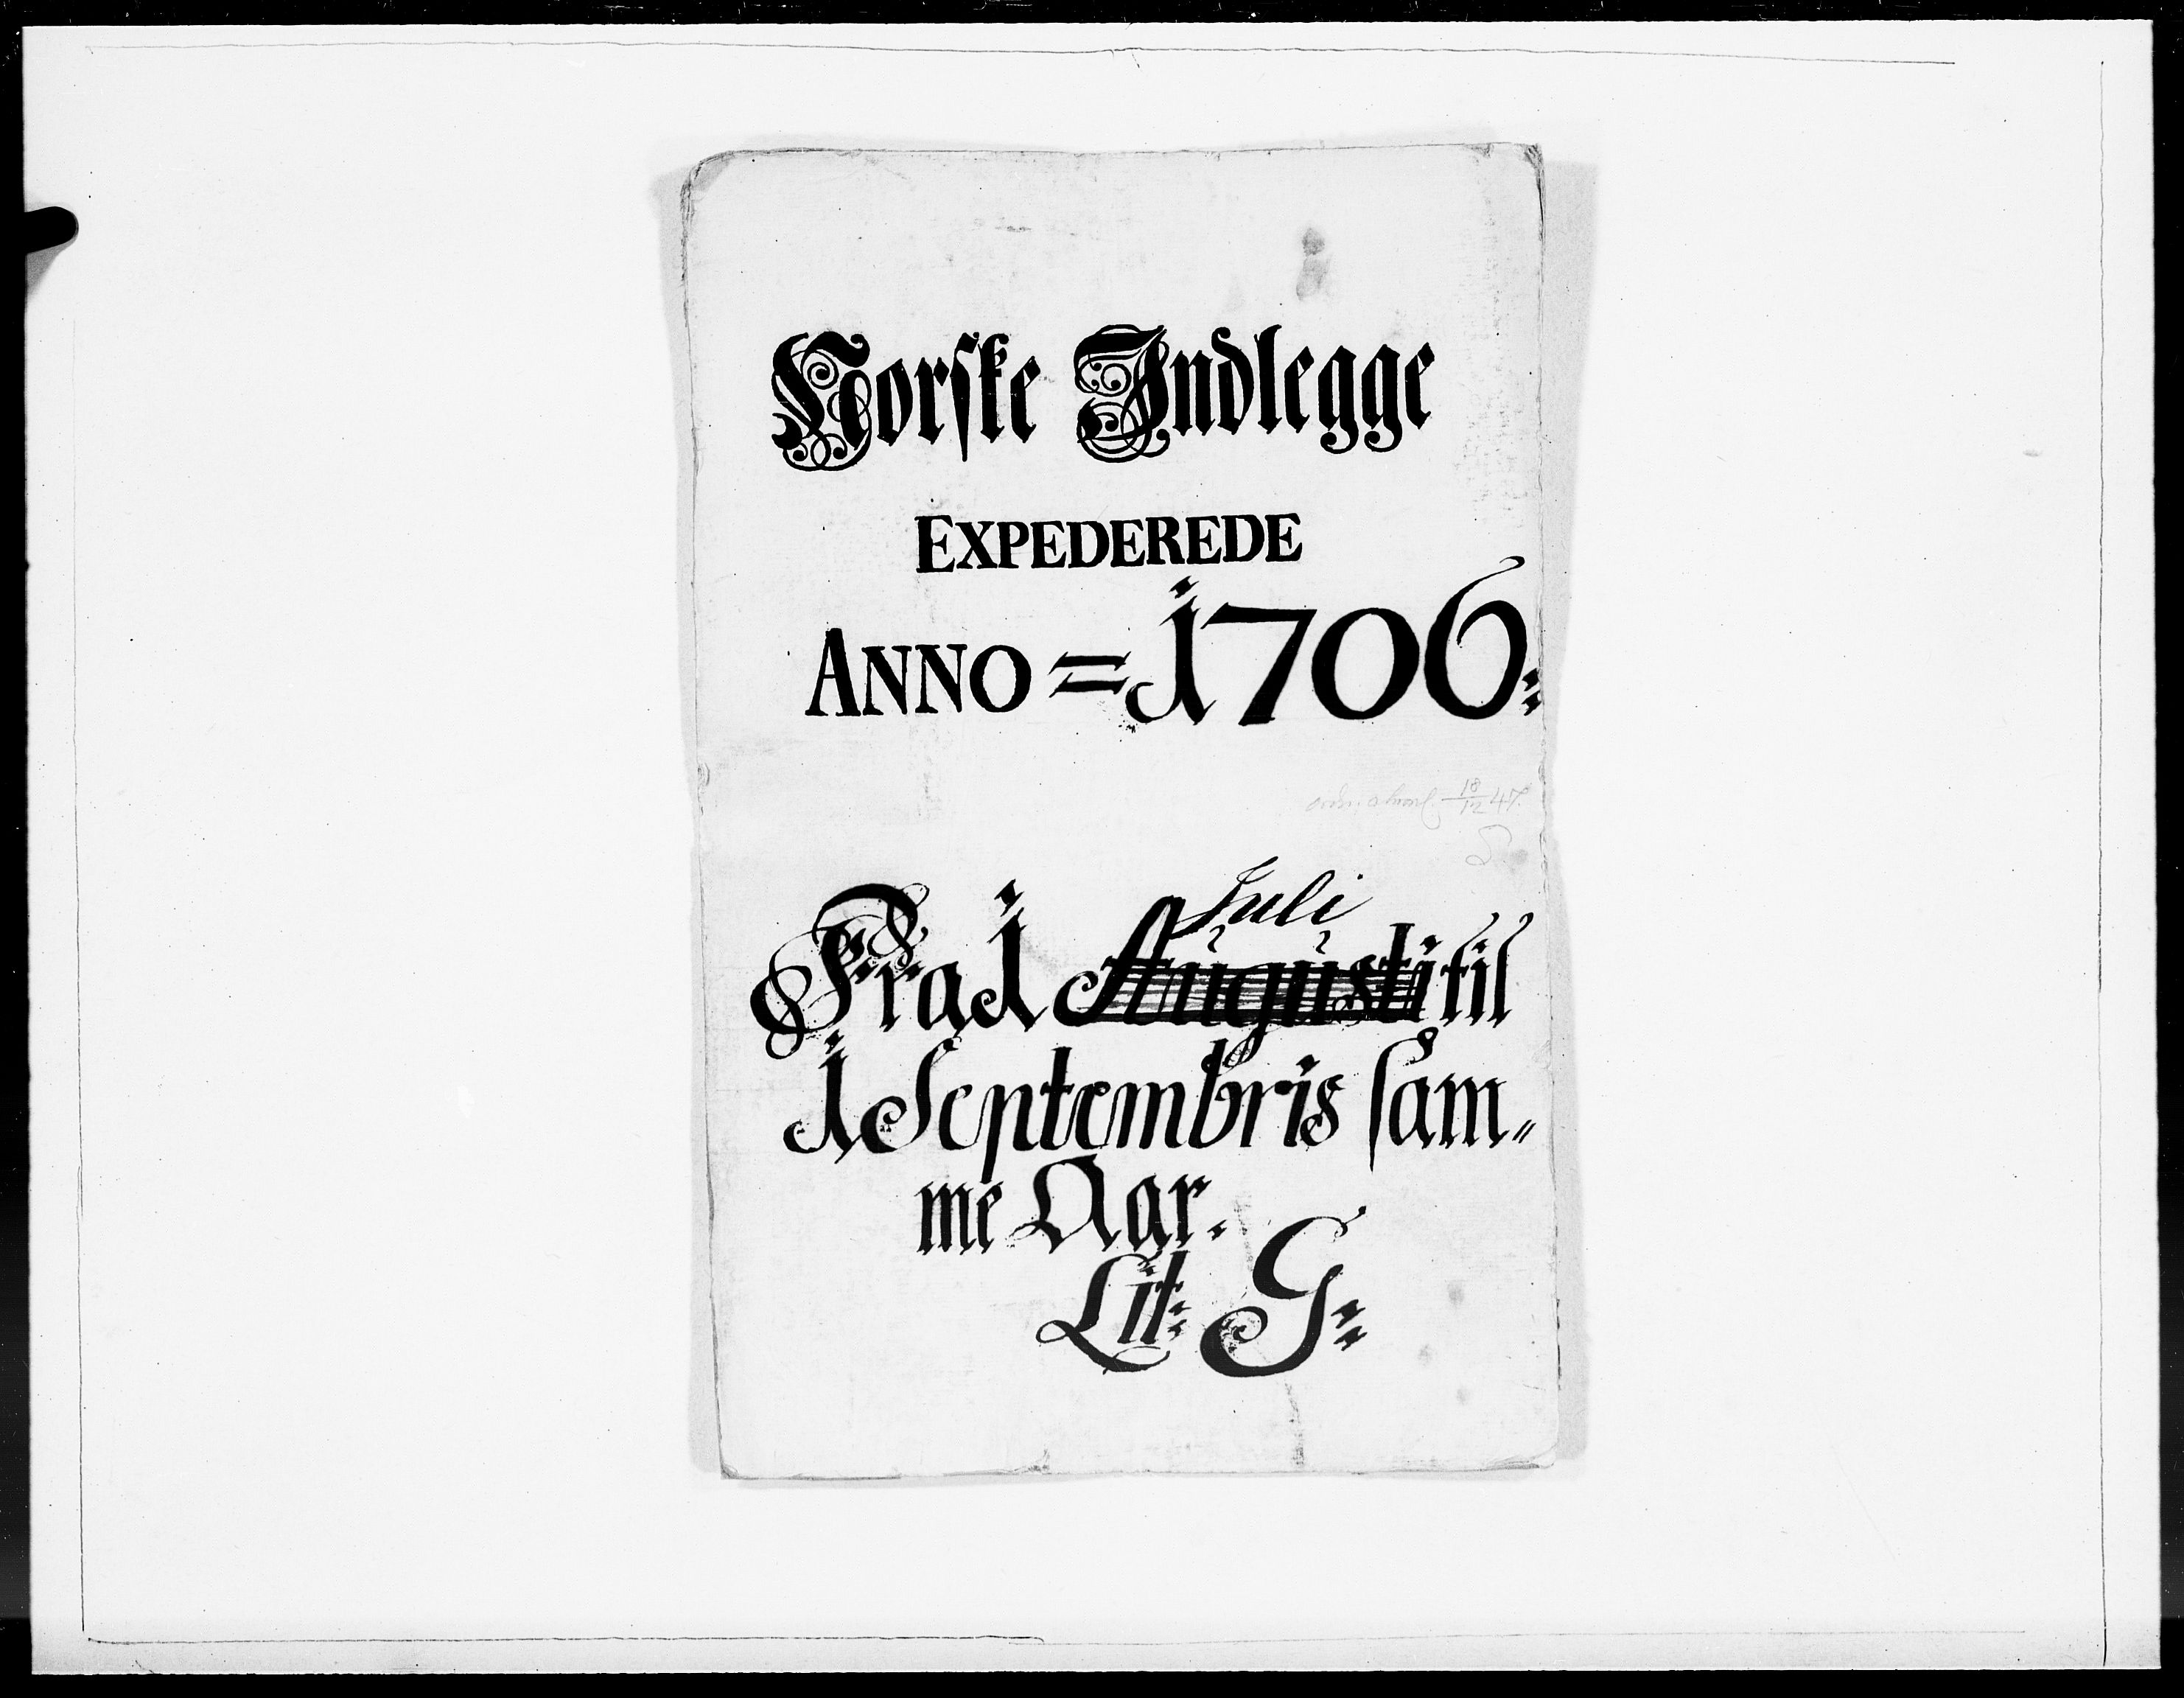 Norske Indlegge
EXPEDEREDE
ANNO = 1706.
18/12 47.
Juli
Fra 1 Augusti til
1 Septembris sam„
me Aar.
Lit: G: